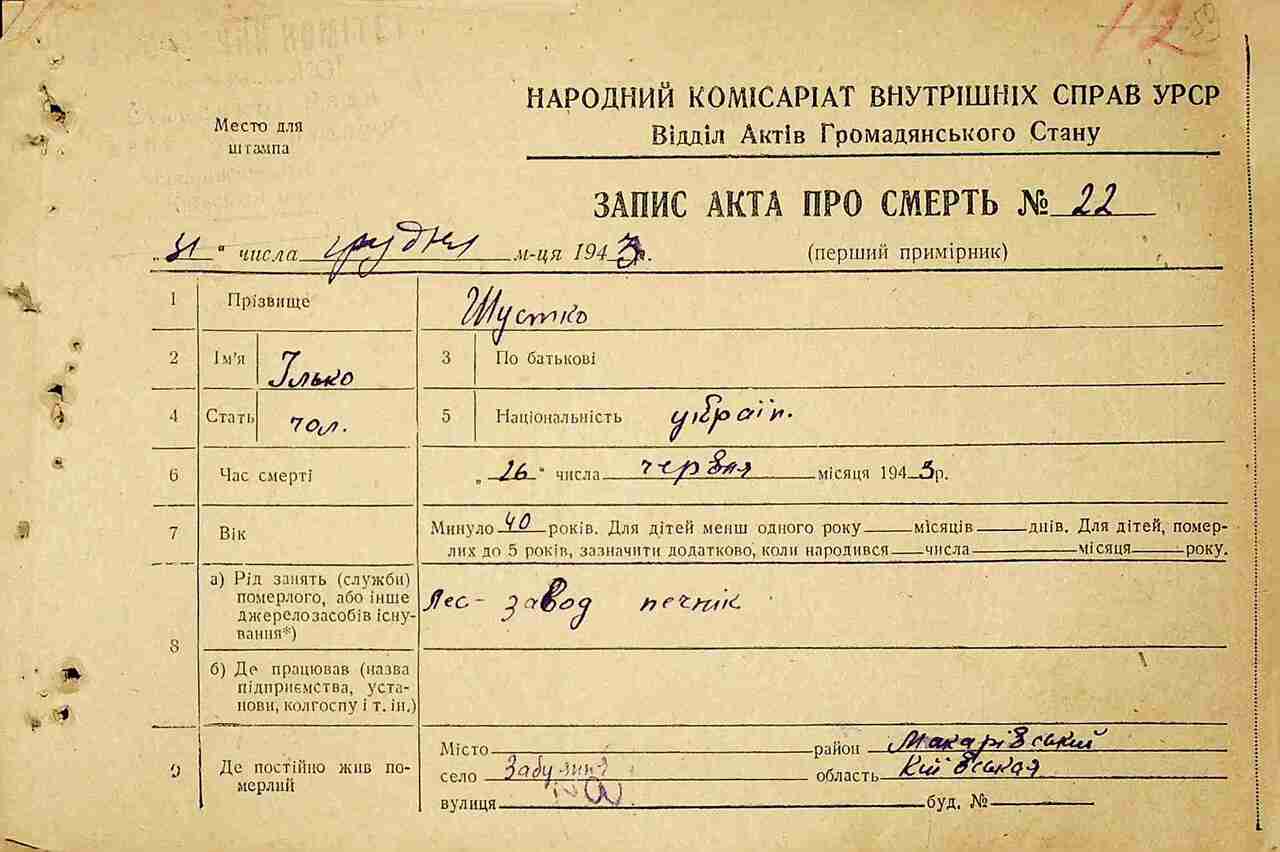 112 59
НАРОДНИЙ КОМІСАРІАТ ВНУТРІШНІХ СПРАВ УРСР
Відділ Актів Громадянського Стану
Место для
штампа
ЗАПИС АКТА ПРО СМЕРТЬ № 22
„31“ числа грудня м-ця 1943р.
(перший примірник)
1 Прізвище Шустко
2 Ім'я Ілько 3 По батькові
4 Стать чол. 5 Національність україн.
6 Час смерті „26“ числа червня місяця 1943р.
7 Вік Минуло 40 років. Для дітей менш одного року місяців днів. Для дітей, помер-
лих до 5 років, зазначити додатково, коли народився числа місяця року.
8 а) Рід занять (служби)
померлого, або інше
джерело засобів існу-
вання*)
Лес-завод печнік
б) Де працював (назва
підприємства, уста-
нови, колгоспу і т. ін.)
9 Де постійно жив по-
мерлий
Місто район Макарівський
село область Київськая
вулиця буд. №